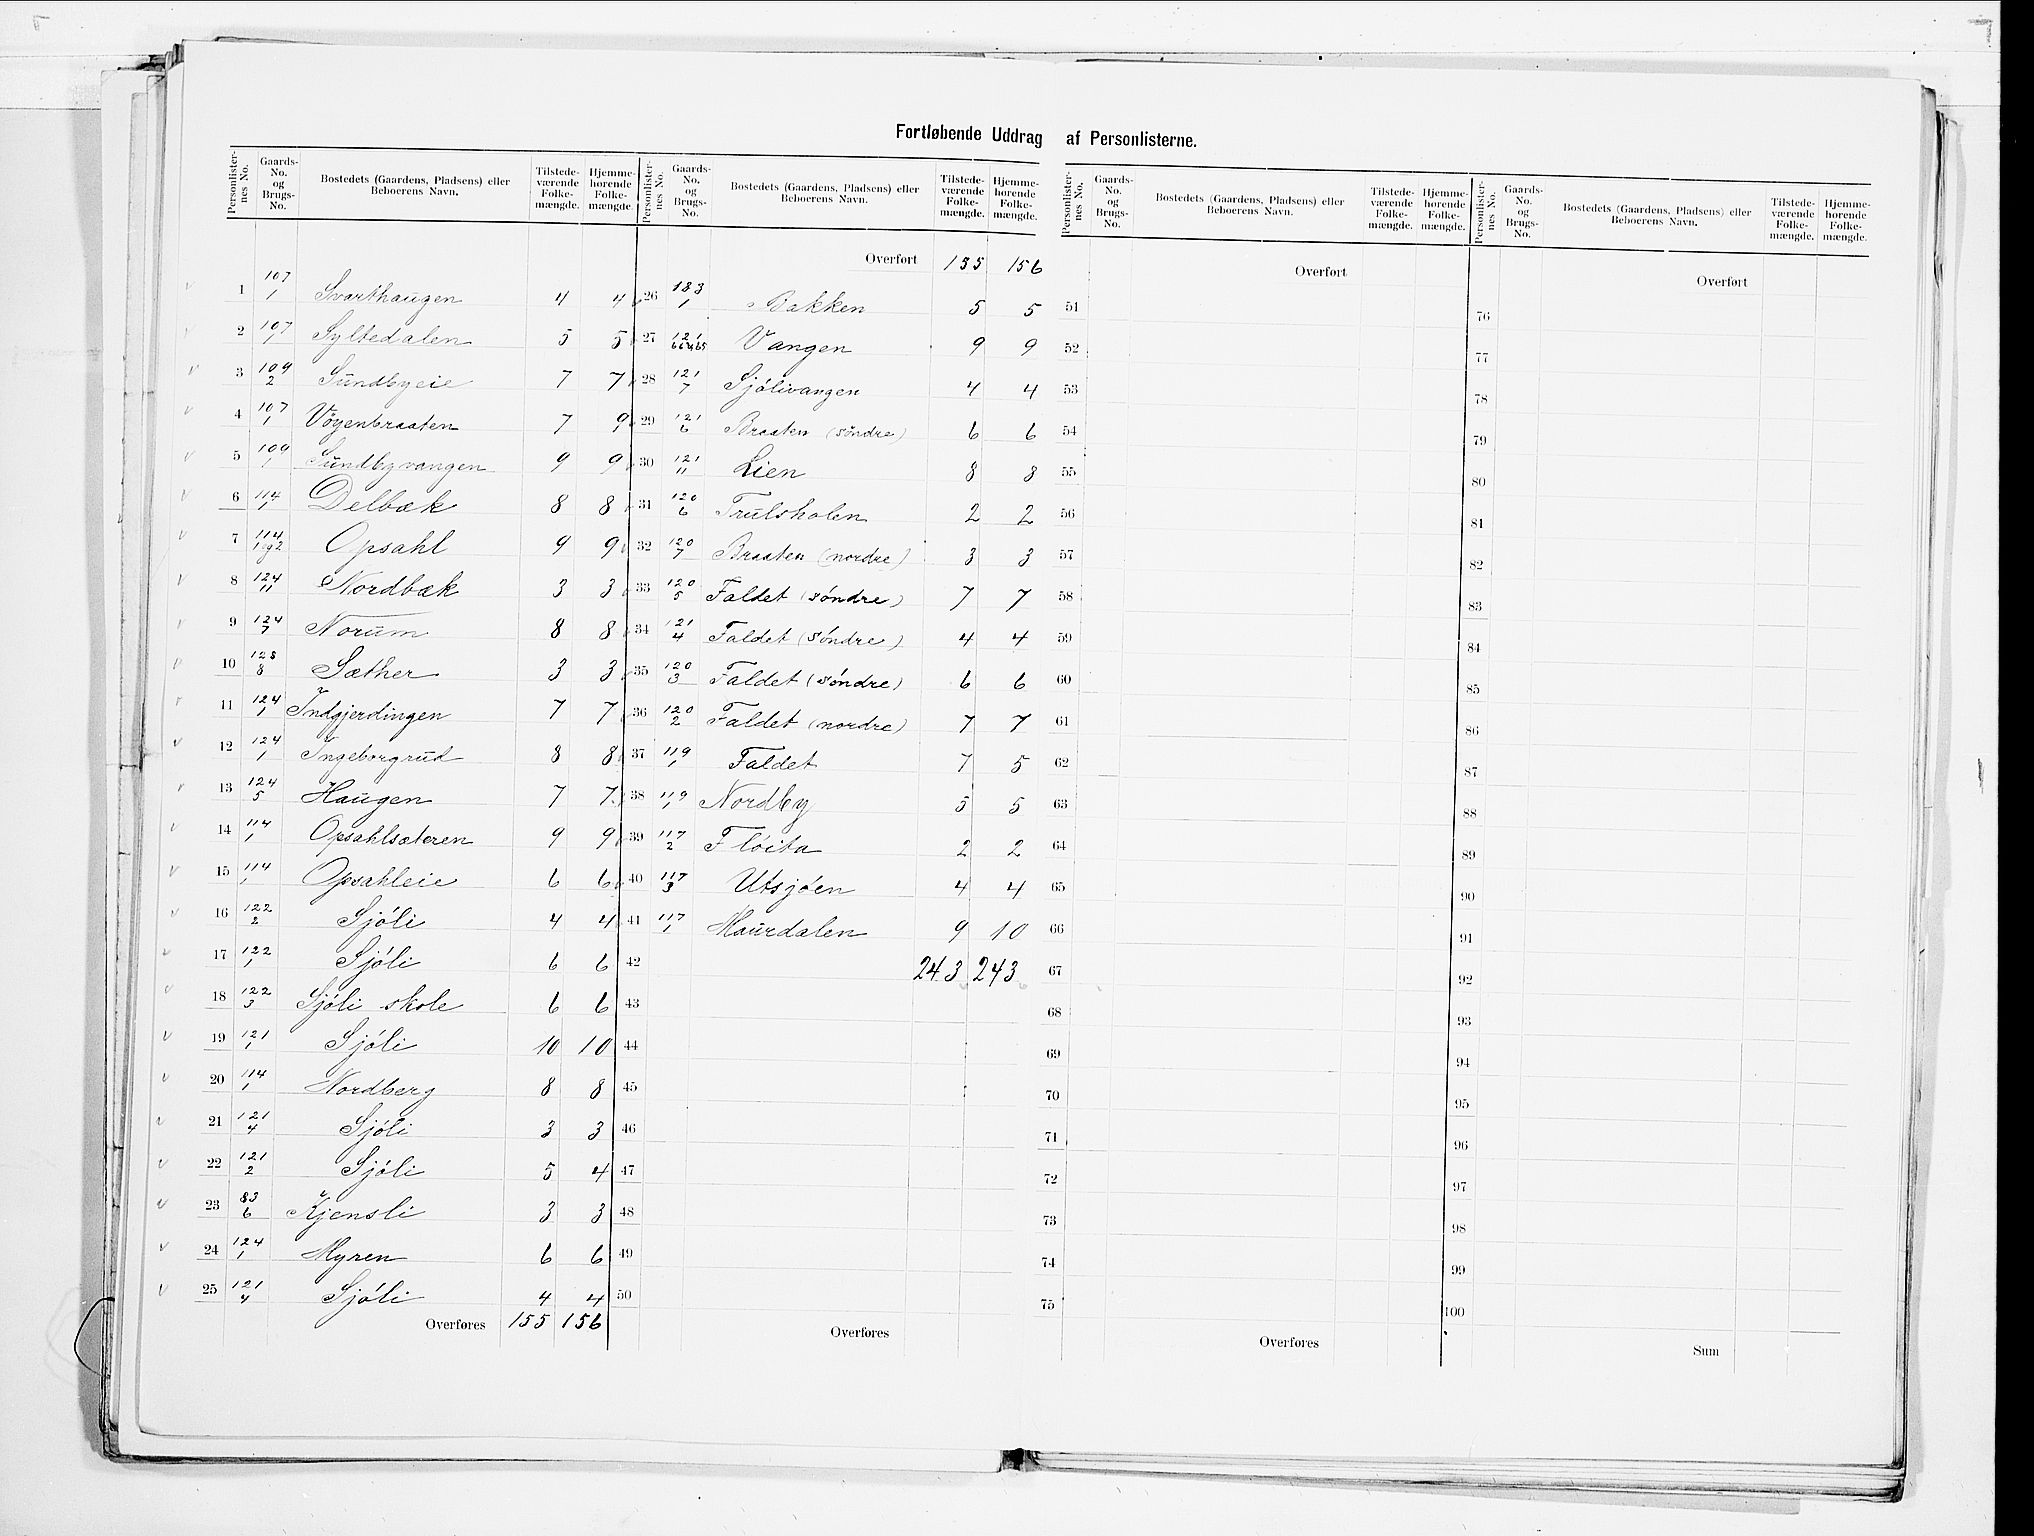 Fortløbende Uddrag af Personlisterne.
Personlister-nes No. | Gaards-No. og Brugs-No. | Bostedets (Gaardens, Pladsens) eller Beboerens Navn. | Tilstede-værende Folke-mængde. | Hjemme-hørende Folke-mængde.
1 | 107/1 | Svarthaugen | 4 | 4
2 | 107/1 | Syltedalen | 5 | 5
3 | 109/2 | Sundbyeie | 7 | 7
4 | 107/1 | Vöyenbraaten | 7 | 9
5 | 109/1 | Sundbyvangen | 9 | 9
6 | 114/1 | Delbæk | 8 | 8
7 | 114/1 og 2 | Opsahl | 9 | 9
8 | 124/11 | Nordbæk | 3 | 3
9 | 124/7 | Norum | 8 | 8
10 | 128/8 | Sæther | 3 | 3
11 | 124/1 | Indgjerdingen | 7 | 7
12 | 124/1 | Ingeborgrud | 8 | 8
13 | 124/5 | Haugen | 7 | 7
14 | 114/1 | Opsahlsæteren | 9 | 9
15 | 114/1 | Opsahleie | 6 | 6
16 | 122/2 | Sjóli | 4 | 4
17 | 122/1 | Sjóli | 6 | 6
18 | 122/3 | Sjóli skole | 6 | 6
19 | 121/1 | Sjóli | 10 | 10
20 | 114/1 | Nordberg | 8 | 8
21 | 121/4 | Sjóli | 3 | 3
22 | 121/2 | Sjóli | 5 | 4
23 | 83/6 | Kjensli | 3 | 3
24 | 124/1 | Myren | 6 | 6
25 | 121/4 | Sjóli | 4 | 4
Overføres | 155 | 156
Personlister-nes No. | Gaards-No. og Brugs-No. | Bostedets (Gaardens, Pladsens) eller Beboerens Navn. | Tilstede-værende Folke-mængde. | Hjemme-hørende Folke-mængde.
Overført | 155 | 156
26 | 183/1 | Bakken | 5 | 5
27 | 121 | Vangen | 9 | 9
28 | 121/7 | Sjólivangen | 4 | 4
29 | 121/6 | Braaten (söndre) | 6 | 6
30 | 121/11 | Lien | 8 | 8
31 | 120/6 | Trulsholen | 2 | 2
32 | 120/7 | Braaten (nordre) | 3 | 3
33 | 120/5 | Faldet (söndre) | 7 | 7
34 | 121/4 | Faldet (söndre) | 4 | 4
35 | 120/3 | Faldet (söndre) | 6 | 6
36 | 120/2 | Faldet (nordre) | 7 | 7
37 | 119/1 | Faldet | 7 | 5
38 | 119/1 | Nordby | 5 | 5
39 | 117/2 | Flóita | 2 | 2
40 | 117/3 | Utsjóen | 4 | 4
41 | 117/1 | Maurdalen | 9 | 10
42 | 243 | 243
43
44
45
46
47
48
49
50
Overføres
Personlister-nes No. | Gaards-No. og Brugs-No. | Bostedets (Gaardens, Pladsens) eller Beboerens Navn. | Tilstede-værende Folke-mængde. | Hjemme-hørende Folke-mængde.
Overført
51
52
53
54
55
56
57
58
59
60
61
62
63
64
65
66
67
68
69
70
71
72
73
74
75
Overføres
Personlister-nes No. | Gaards-No. og Brugs-No. | Bostedets (Gaardens, Pladsens) eller Beboerens Navn. | Tilstede-værende Folke-mængde. | Hjemme-hørende Folke-mængde.
Overført
76
77
78
79
80
81
82
83
84
85
86
87
88
89
90
91
92
93
94
95
96
97
98
99
100
Sum